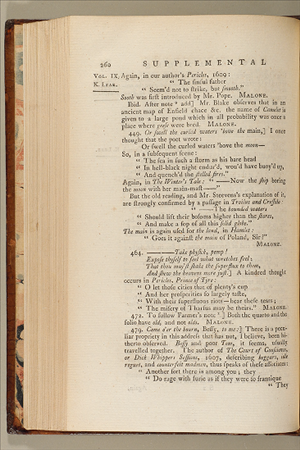 260 SUPPLEMENTAL
VOL. IX. Again, in our author's Pericles, 1609:
K. LEAR.
" The sinful father
" Seem'd not to strike, but smooth."
Sooth was first introduced by Mr. Pope. MALONE.
Ibid. After note * add] Mr. Blake observes that in an
ancient map of Enfield chace &c. the name of Camelot is
given to a large pond which in all probability was once a
place where geese were bred. MALONE.
449. Or swell the curled waters 'bove the main,] I once
thought that the poet wrote:
Or swell the curled waters 'bove the moon—
So, in a subsequent scene:
" The sea in such a storm as his bare head
" In hell-black night endur'd, wou'd have buoy'd up,
" And quench'd the stelled fires."
Again, in The Winter's Tale: " —Now the ship boring
the moon with her main-mast—"
But the old reading, and Mr. Steevens's explanation of it,
are strongly confirmed by a passage in Troilus and Cressida:
" ——The bounded waters
" Should lift their bosoms higher than the shores,
" And make a sop of all this solid globe."
The main is again used for the land, in Hamlet:
" Goes it against the main of Poland, Sir?"
MALONE.
464. ————Take physick, pomp!
Expose thyself to feel what wretches feel;
That thou may'st shake the superflux to them,
And shew the heavens more just.] A kindred thought
occurs in Pericles, Prince of Tyre:
" O let those cities that of plenty's cup
" And her prosperities so largely taste,
" With their superfluous riots—hear these tears;
" The misery of Tharsus may be theirs." MALONE.
472. To follow Farmer's note *.] Both the quarto and the
folio have old, and not olds. MALONE.
479. Come o'er the bourn, Bessy, to me:] There is a pecu-
liar propriety in this address that has not, I believe, been hi-
therto observed. Bessy and poor Tom, it seems, usually
travelled together. The author of The Court of Conscience,
or Dick Whippers Sessions, 1607, describing beggers, idle
rogues, and counterfeit madmen, thus speaks of these associates:
" Another sort there is among you; they
" Do rage with furie as if they were so frantique
" They